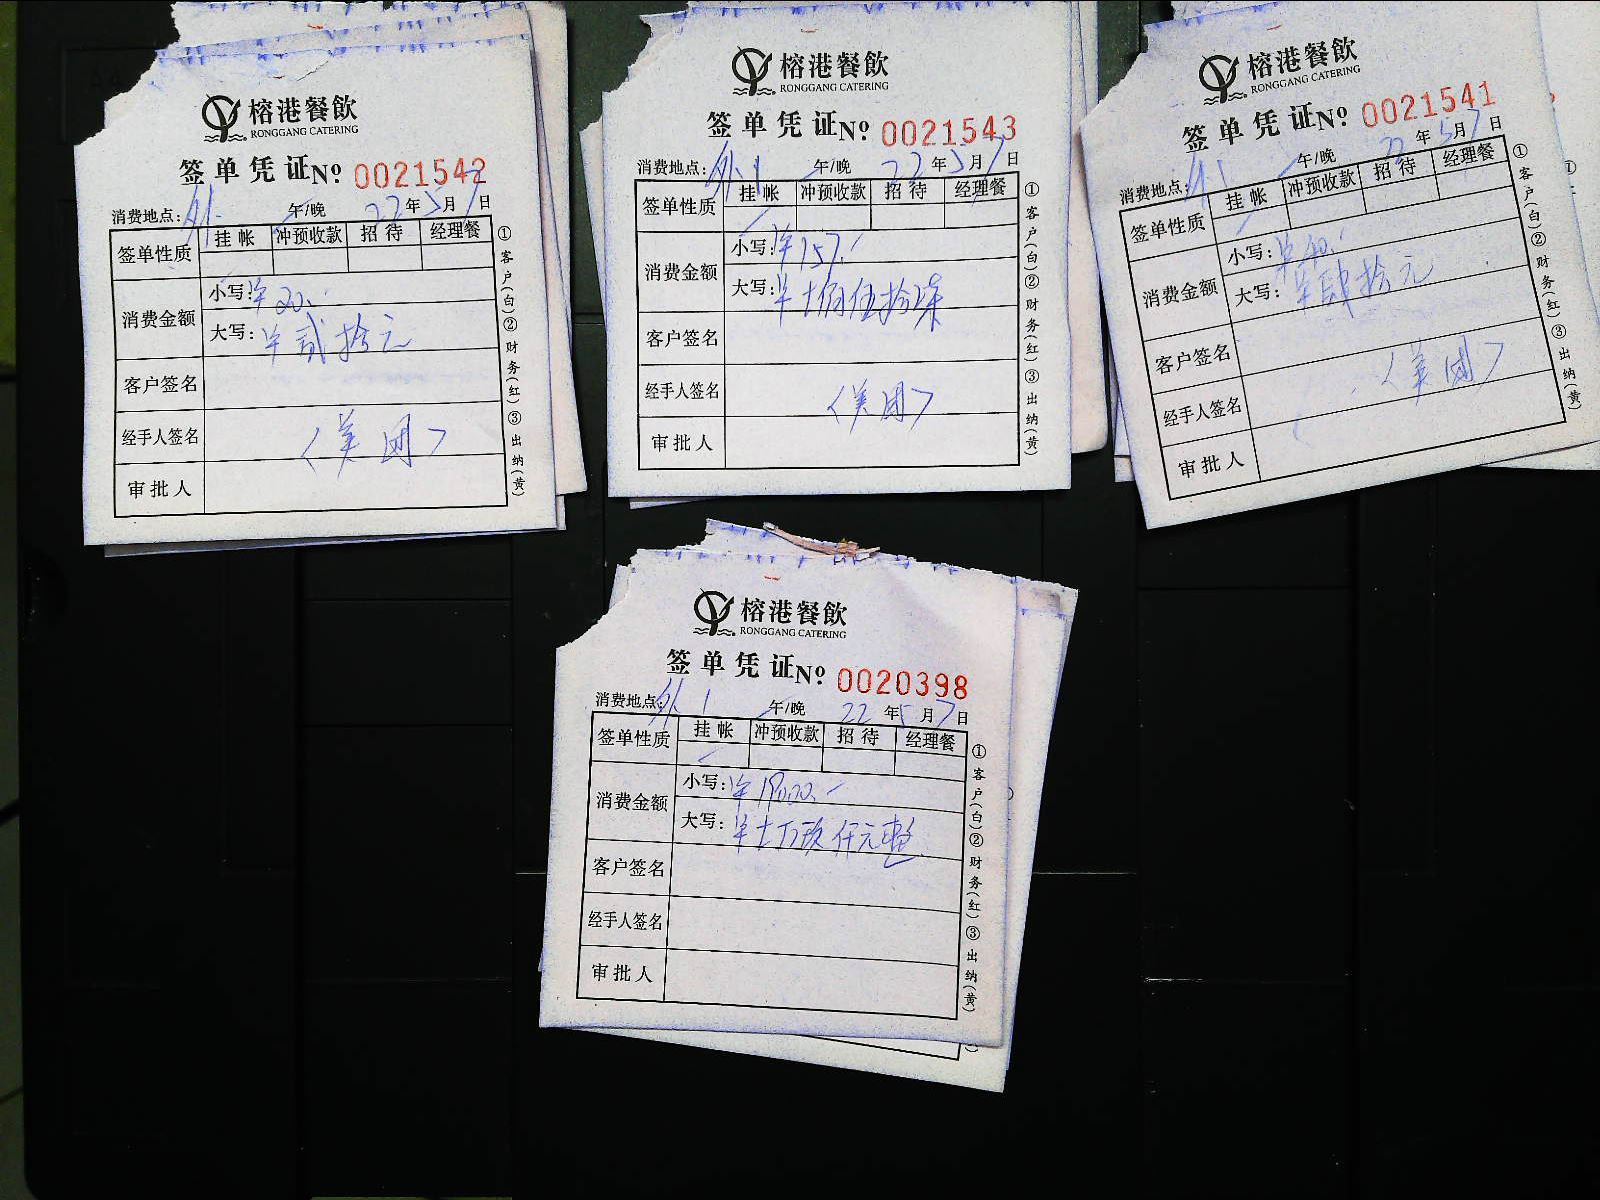 榕港餐飲
RONGGANG CATERING
签单凭证№ 0021542
消费地点: 外 午/晚 22年5月7日
签单性质 挂帐 冲预收款 招待 经理餐
消费金额
小写: ¥20.
大写: ¥贰拾元
客户签名
经手人签名 〈美团〉
审批人
①客户(白)②财务(红)③出纳(黄)
榕港餐飲
RONGGANG CATERING
签单凭证№ 0021543
消费地点: 外1 午/晚 22年5月7日
签单性质 挂帐 冲预收款 招待 经理餐
消费金额
小写: ¥157.
大写: ¥ 佰伍拾柒
客户签名
经手人签名 〈美团〉
审批人
①客户(白)②财务(红)③出纳(黄)
榕港餐飲
RONGGANG CATERING
签单凭证№ 0021541
消费地点: 外1 午/晚 22年5月7日
签单性质 挂帐 冲预收款 招待 经理餐
消费金额
小写: ¥40.
大写: ¥肆拾元
客户签名
经手人签名 〈美团〉
审批人
①客户(白)②财务(红)③出纳(黄)
榕港餐飲
RONGGANG CATERING
签单凭证№ 0020398
消费地点: 外1 午/晚 22年5月7日
签单性质 挂帐 冲预收款 招待 经理餐
消费金额
小写: ¥19000.
大写: ¥ 万玖仟元整
客户签名
经手人签名
审批人
①客户(白)②财务(红)③出纳(黄)